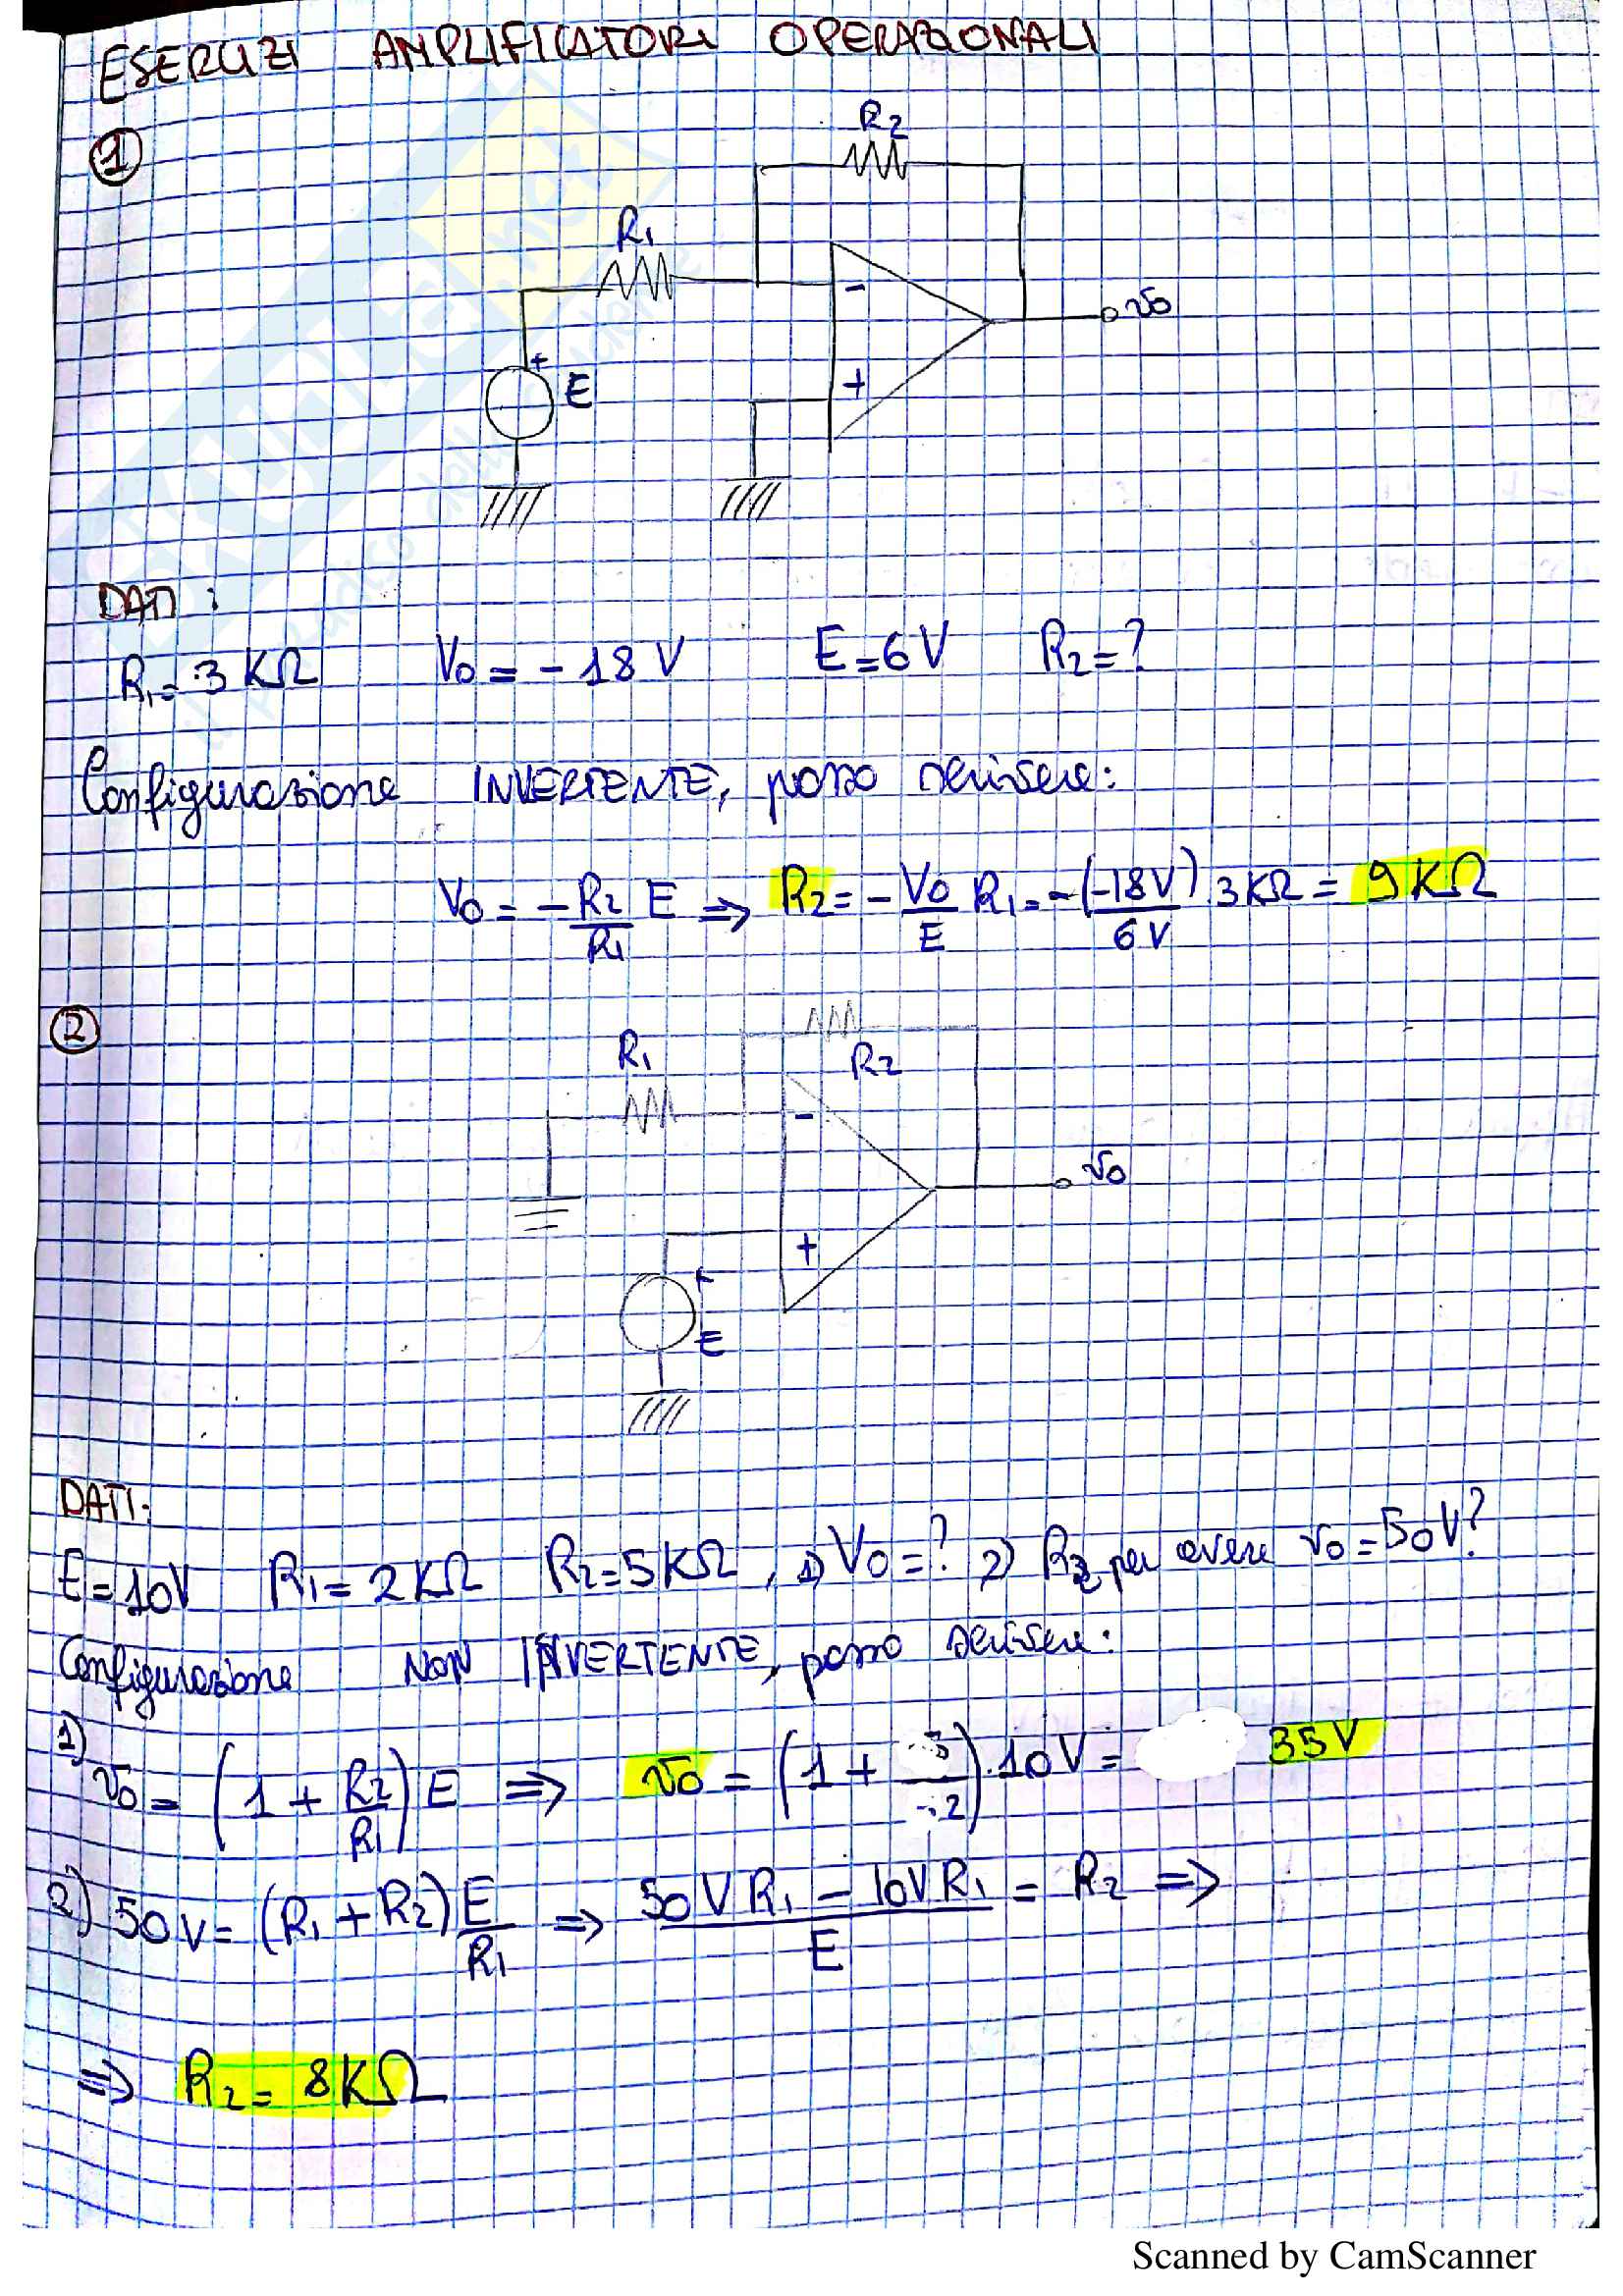 ESERCIZI AMPLIFICATORI OPERAZIONALI
1
R2
R1
-
v0
+
E
+
DATI:
R1=3 KΩ V0=-18 V E=6V R2=?
Configurazione INVERTENTE, posso scrivere:
V0=-R2/R1 E => R2=-V0/E R1=-(-18V)/6V 3KΩ = 9KΩ
2
R1
R2
-
v0
+
E
DATI:
E=10V R1=2KΩ R2=5KΩ, 1) V0=? 2) R2 per avere v0=50V?
Configurazione NON INVERTENTE, posso scrivere:
1) v0 = (1+R2/R1) E => v0 = (1+5/2).10V= 35V
2) 50V=(R1+R2)E/R1 => 50VR1-10VR1/E = R2 =>
=> R2=8KΩ
Scanned by CamScanner